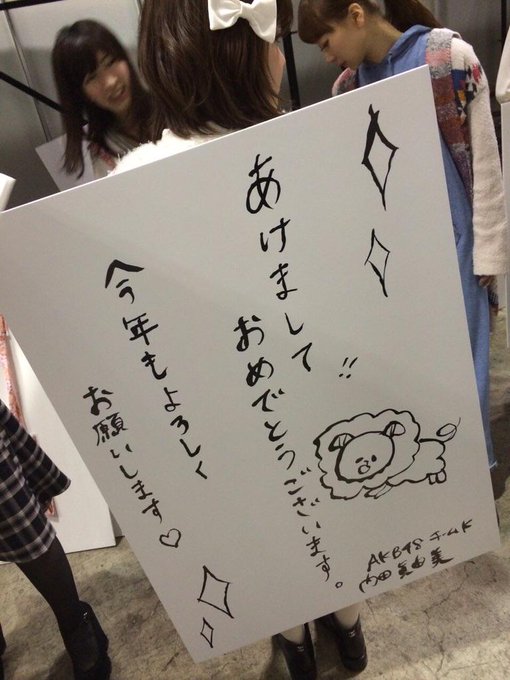 あけまして
おめでとうございます。
!!
今年もよろしく
お願いします♡
AKB48 チームK
内田眞由美